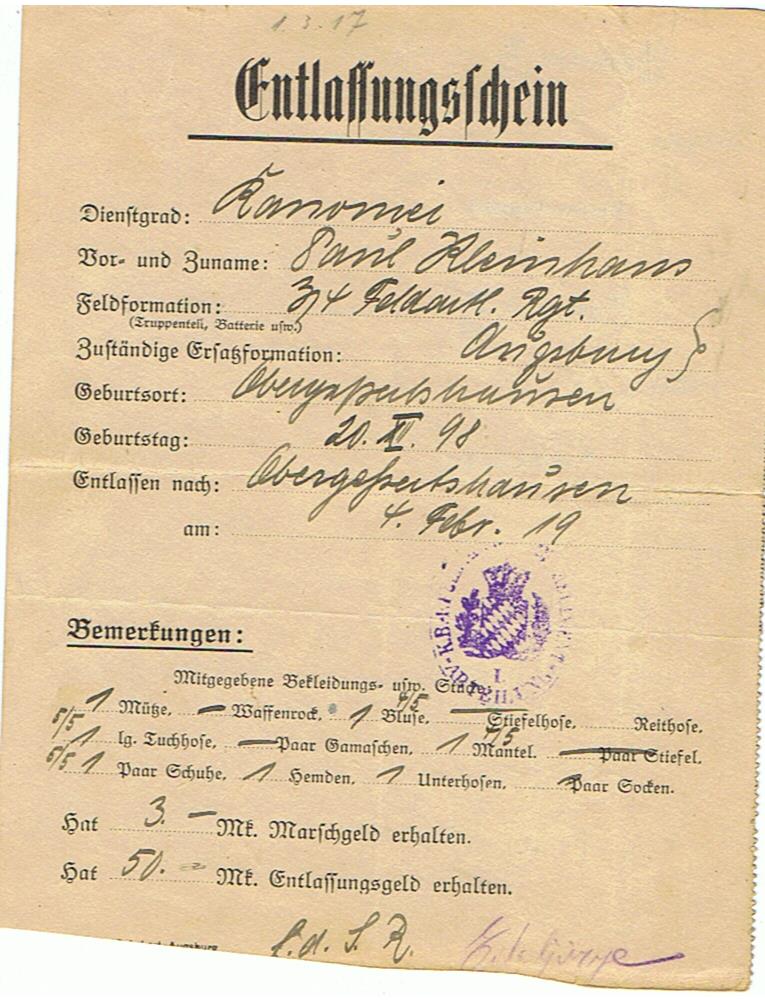 1.3.17
Entlassungsschein
Dienstgrad: Kanonier
Vor- und Zuname: Paul Kleinhans
Feldformation: 3/4 Feldartl. Rgt.
(Truppenteil, Batterie usw.)
Zuständige Ersatzformation: Augsburg
Geburtsort: Obergessertshausen
Geburtstag: 20. XII. 98
Entlassen nach: Obergessertshausen
am: 4. Febr. 19
I.
Bemerkungen:
Mitgegebene Bekleidungs- usw. Stücke
4/5
5/5 1 Mütze, — Waffenrock, 1 Bluse, — Stiefelhose, Reithose,
4/5
1 lg. Tuchhose, — Paar Gamaschen, 1 Mantel, — Paar Stiefel,
5/5 1 Paar Schuhe, 1 Hemden, 1 Unterhosen, Paar Socken.
Hat 3. — Mk. Marschgeld erhalten.
Hat 50. — Mk. Entlassungsgeld erhalten.
Augsburg
S. R.